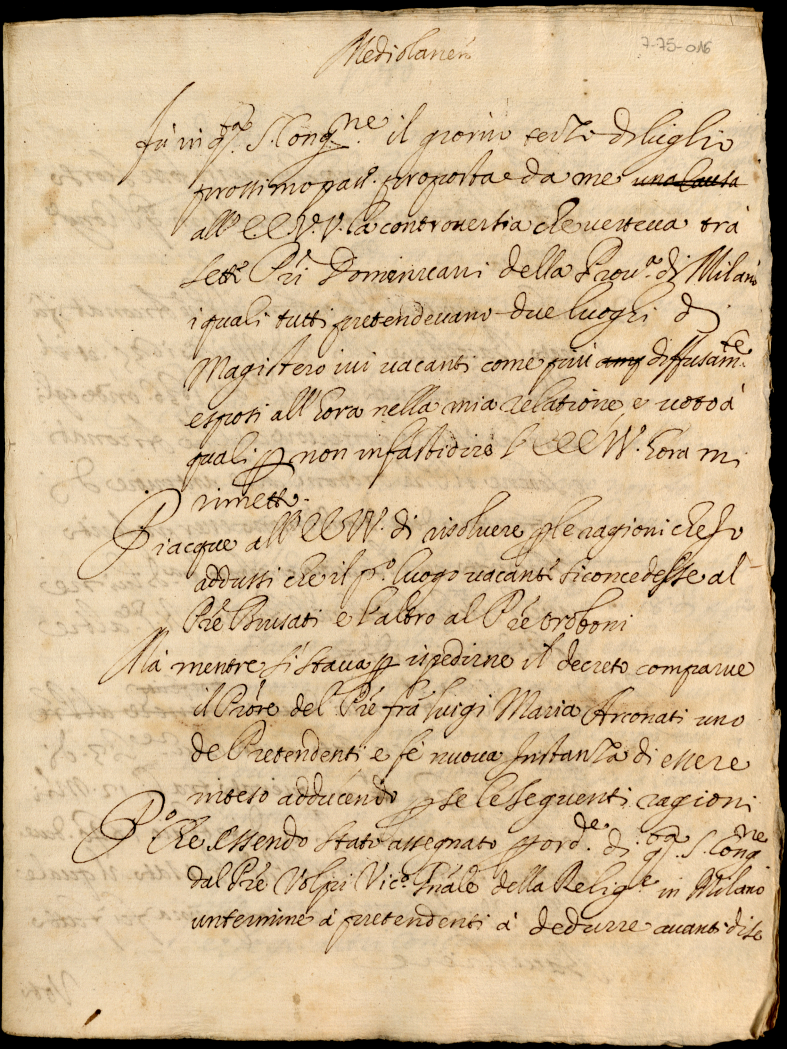 7-75-016
Mediolanen
Fù in q.ta S. Cong.ne il giorno terzo di luglio
prossimo pass. proposta da me una Causa
all' EE.VV. la controversia che verteva trà
sette Pri Domenicani della Prov.a di Milano
i quali tutti pretendevano due luoghi di
Magistero ivi vacanti come più diffusam.te
esposi all'hora nella mia relatione e voto à
quali p non infastidire l' EE VV. hora mi
rimetto.
Piacque all' EE VV. di risolvere p le ragioni che fu
addussi che il p.o luogo vacante si concedesse al
Pre Brusati e l'altro al Pre Oroboni
Mà mentre si stava p ispedirne il decreto comparve
il Prore del Pre frà luigi Maria Arconati uno
de Pretendenti e fè nuova Instanza di essere
inteso adducendo p se le seguenti ragioni
P.o Che essendo stato assegnato p ord.e di q.ta S. Cong.ne
dal Pre Volpi Vic.o Gnãle della Relig.e in Milano
un termine à pretendenti à dedurre avanti di se